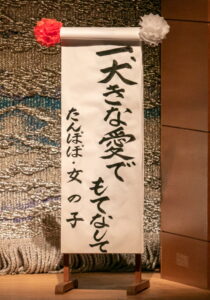 一、大きな愛で
もてなして
たんぽぽ・女の子